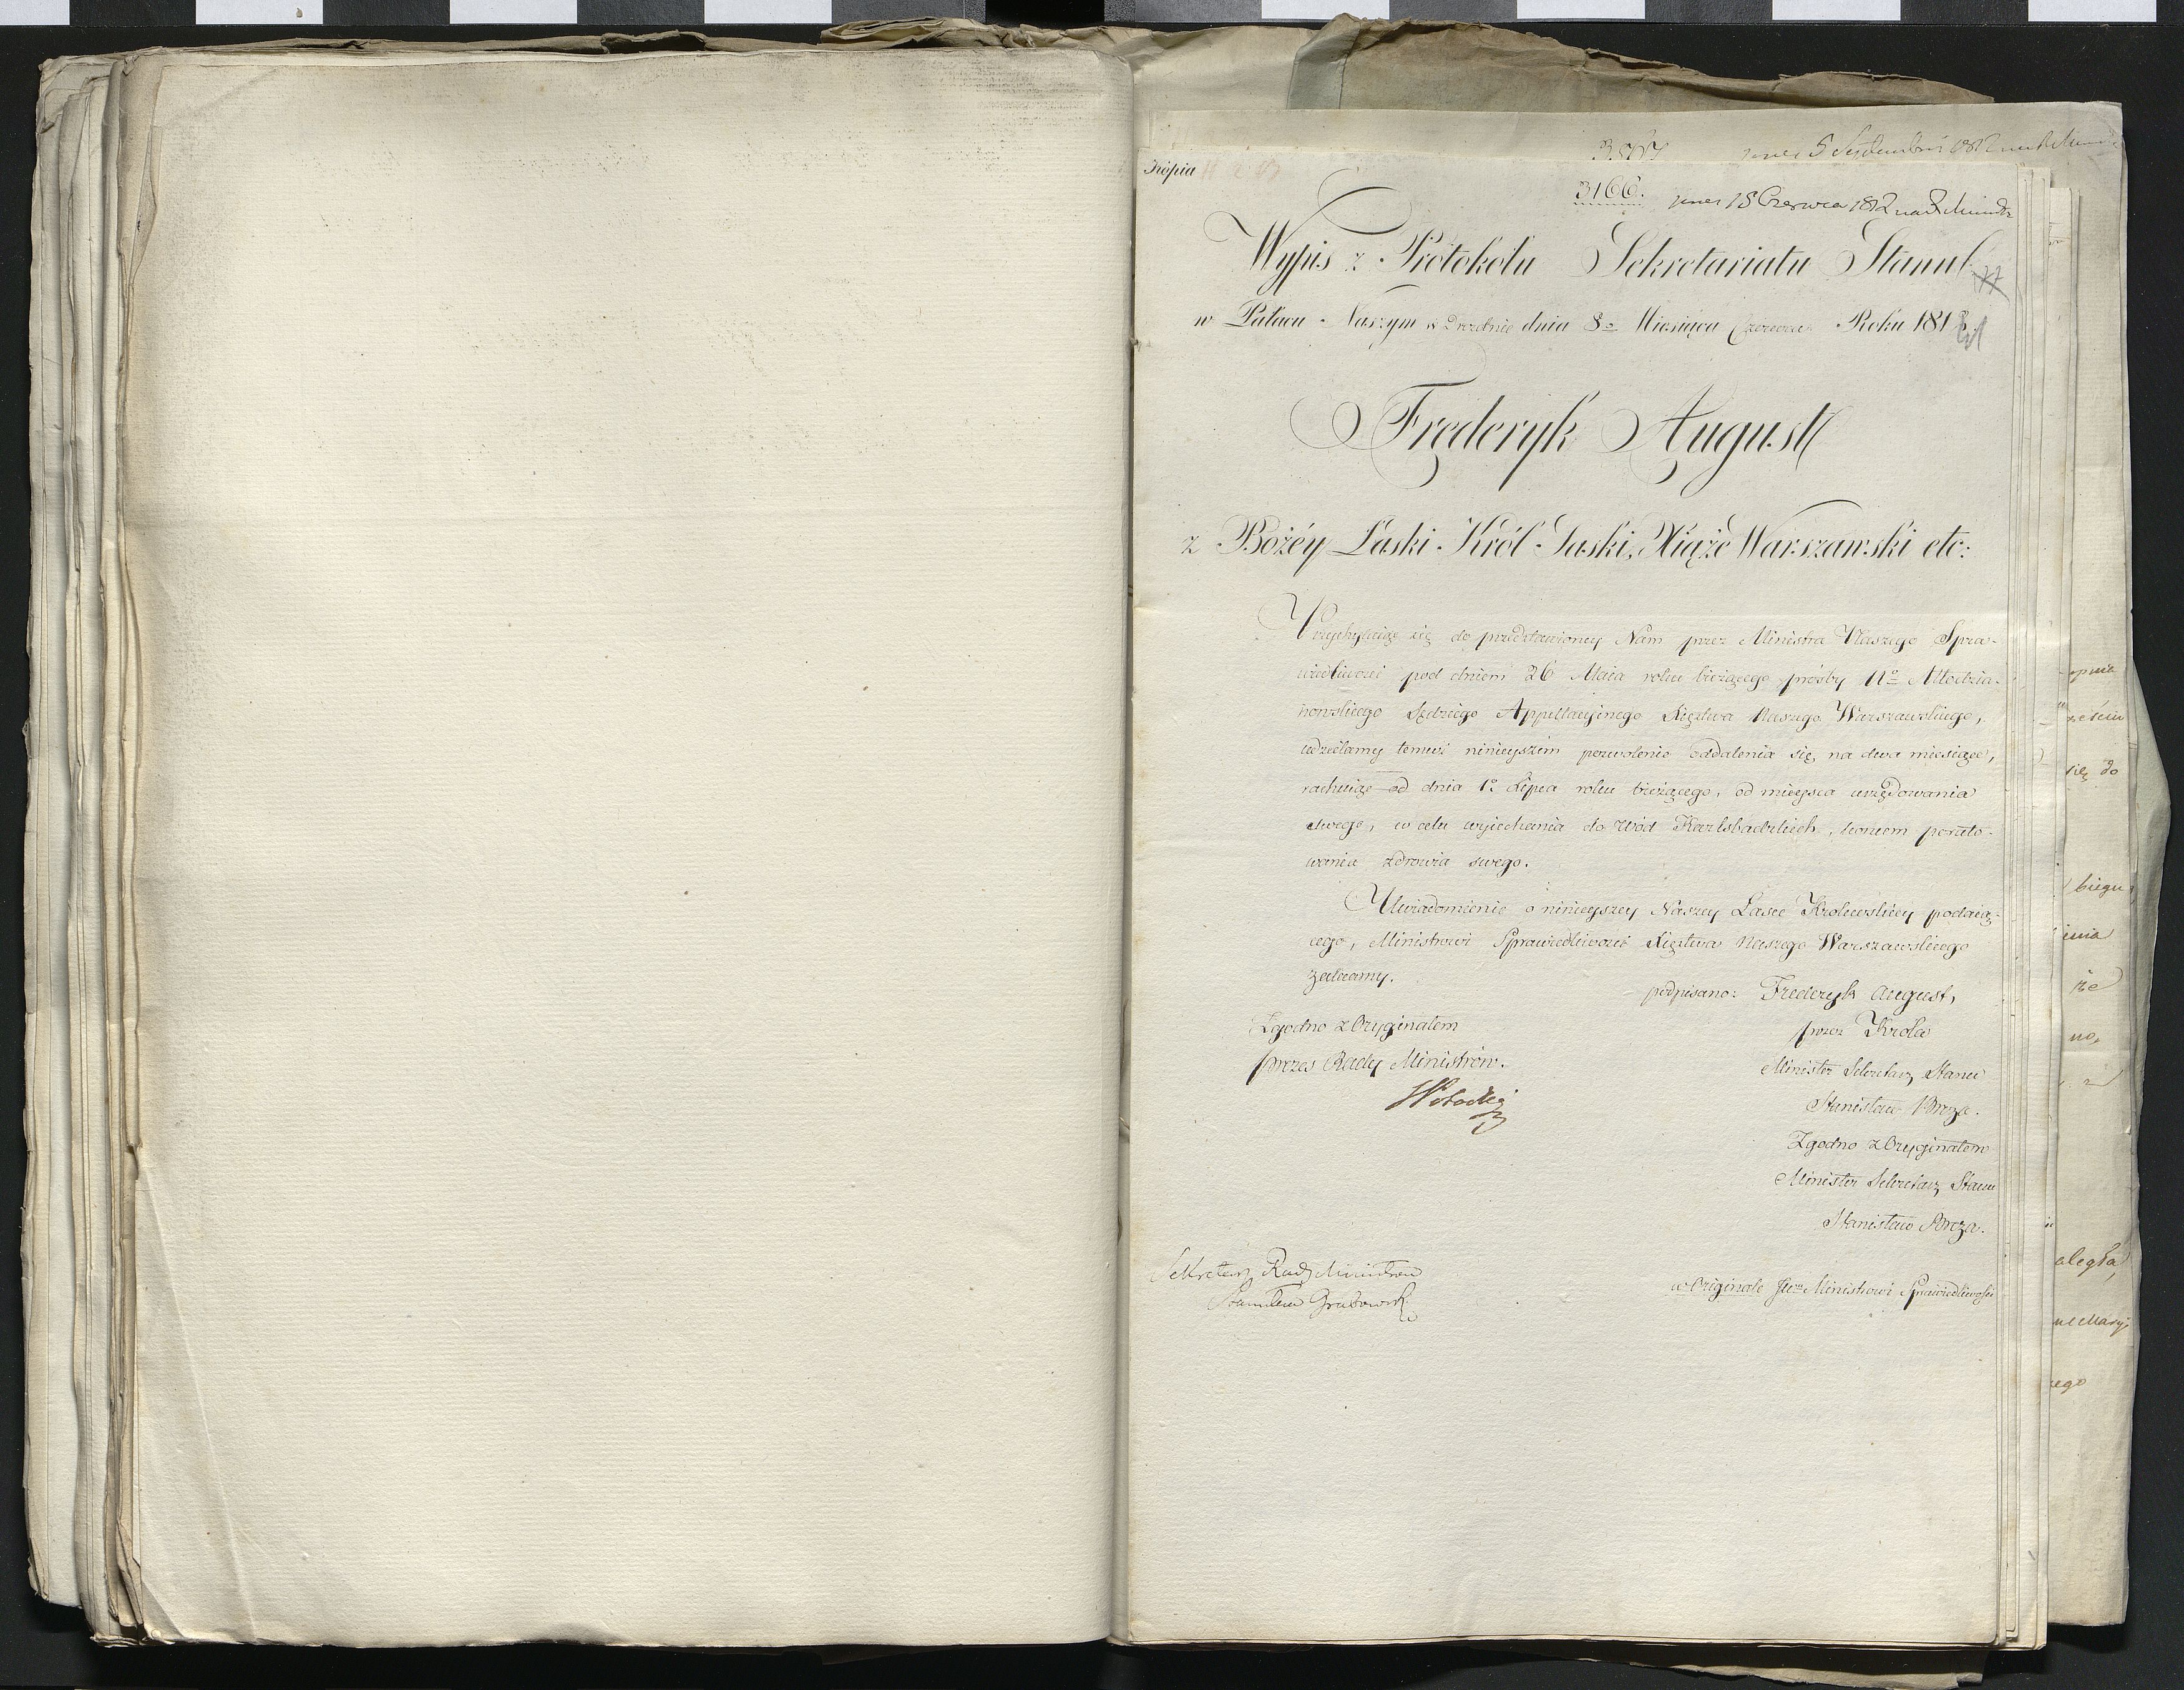 3567 pnes 5 Septembri 1812 na R Min
Kopia
3166. pnes 15 Czerwca 1812 na R Ministr
Wypis z Protokołu Sekretariatu Stanu
w Pałacu Naszym w Dreźnie dnia 8o Miesiąca Czerwca Roku 1812
Fręderyk August
z Bożéy Łaski Król Saski, Xiąże Warszawski etc:
Przychylaiąc się do przedstawioney Nam przez Ministra Naszego Spra-
wiedliwości pod dniem 26 Maia roku bieżącego prośby Uo Młodzia-
nowskiego Sędziego Appellacyinego Xięztwa Naszego Warszawskiego,
udzielamy temuż ninieyszém pozwolenie oddalenia się, na dwa miesiące,
rachuiąc od dnia 1o Lipca roku bieżącego, od mieysca urzędowania
swego, w celu wyiechania do Wód Karlsbadzkich, koniem porato-
wania zdrowia swego.
Uwiadomienie o ninieyszey Naszey Łasce Krolewskiey podaią-
cego, Ministrowi Sprawiedliwości Xięztwa Naszego Warszawskiego
zalecamy.
podpisano: Frederyk August,
przez Krola
Minister Sekretarz Stanu
Stanisław Breza.
Zgodno z Oryginałem
Minister Sekretarz Stanu
Stanisław Breza.
Zgodno z Oryginałem
prezes Rady Ministrów.
SPotocki
Sekretarz Rady Ministrow
Stanisław Grabowski
w Originale JWmu Ministrowi Sprawiedliwości
opnia
eściu
się do
biegu
inia
że
no,
aległa,
ego